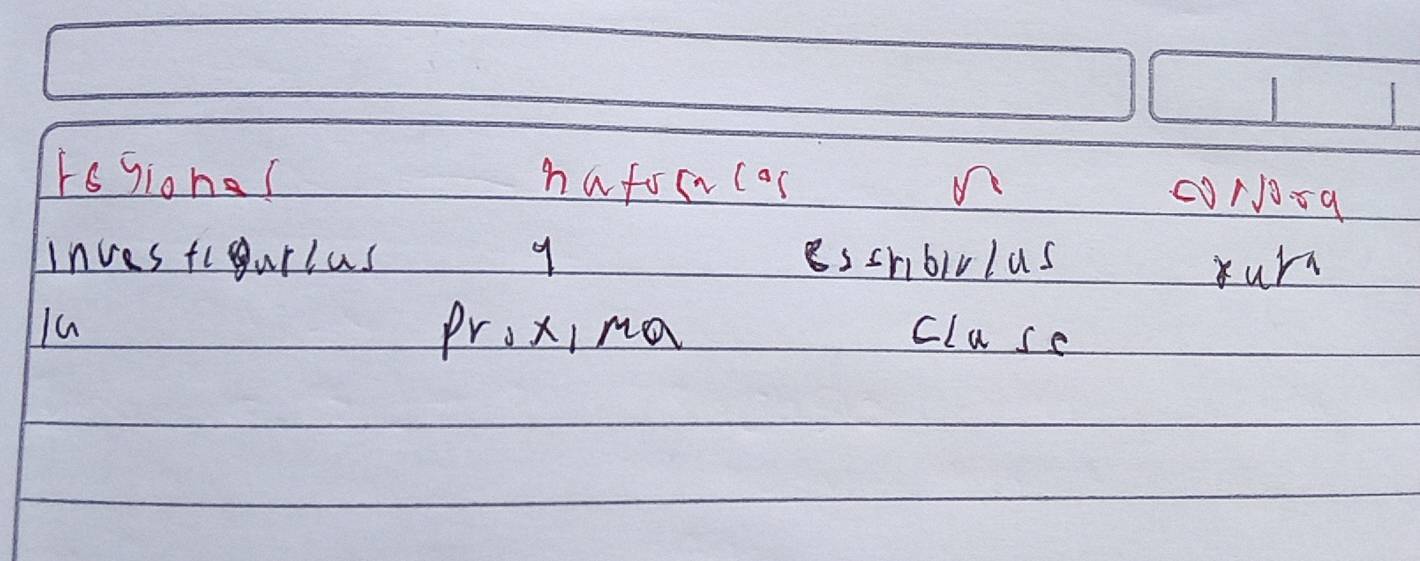 regiones naturales de sonora
investigarlas y escribirlas para
la proxima clase